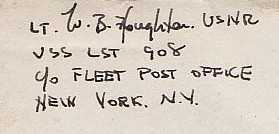 LT. W. B. Houghton. USNR
USS LST 908
c/o FLEET POST OFFICE
NEW YORK. N.Y.